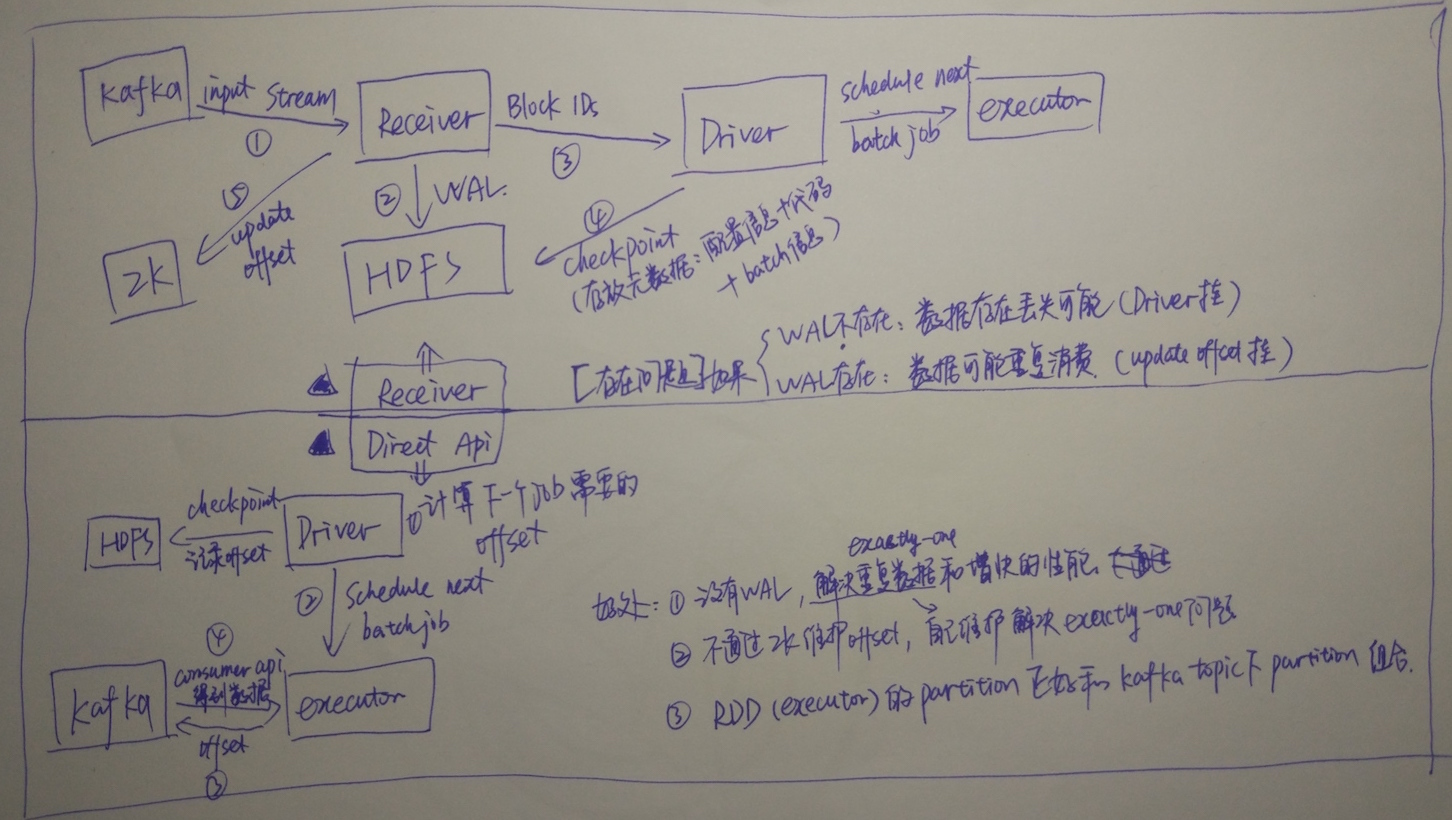 kafka
input stream
①
Receiver
Block IDs
③
Driver
schedule next
batch job
executor
⑤
update
offset
ZK
②
WAL.
HDFS
④
checkpoint
(存放元数据：配置信息+代码
+batch信息)
[存在问题]如果
WAL不存在：数据存在丢失可能(Driver挂)
WAL存在：数据可能重复消费(update offset挂)
Receiver
Direct Api
HDFS
checkpoint
记录offset
Driver
①计算下一个job需要的
offset
②
schedule next
batch job
④
consumer api
得到数据
kafka
executor
offset
③
exactly-one
好处：①没有WAL，解决重复数据和增快的性能
②不通过ZK维护offset，自己维护解决exactly-one问题
③ RDD(executor)的partition正好和kafka topic下partition组合.